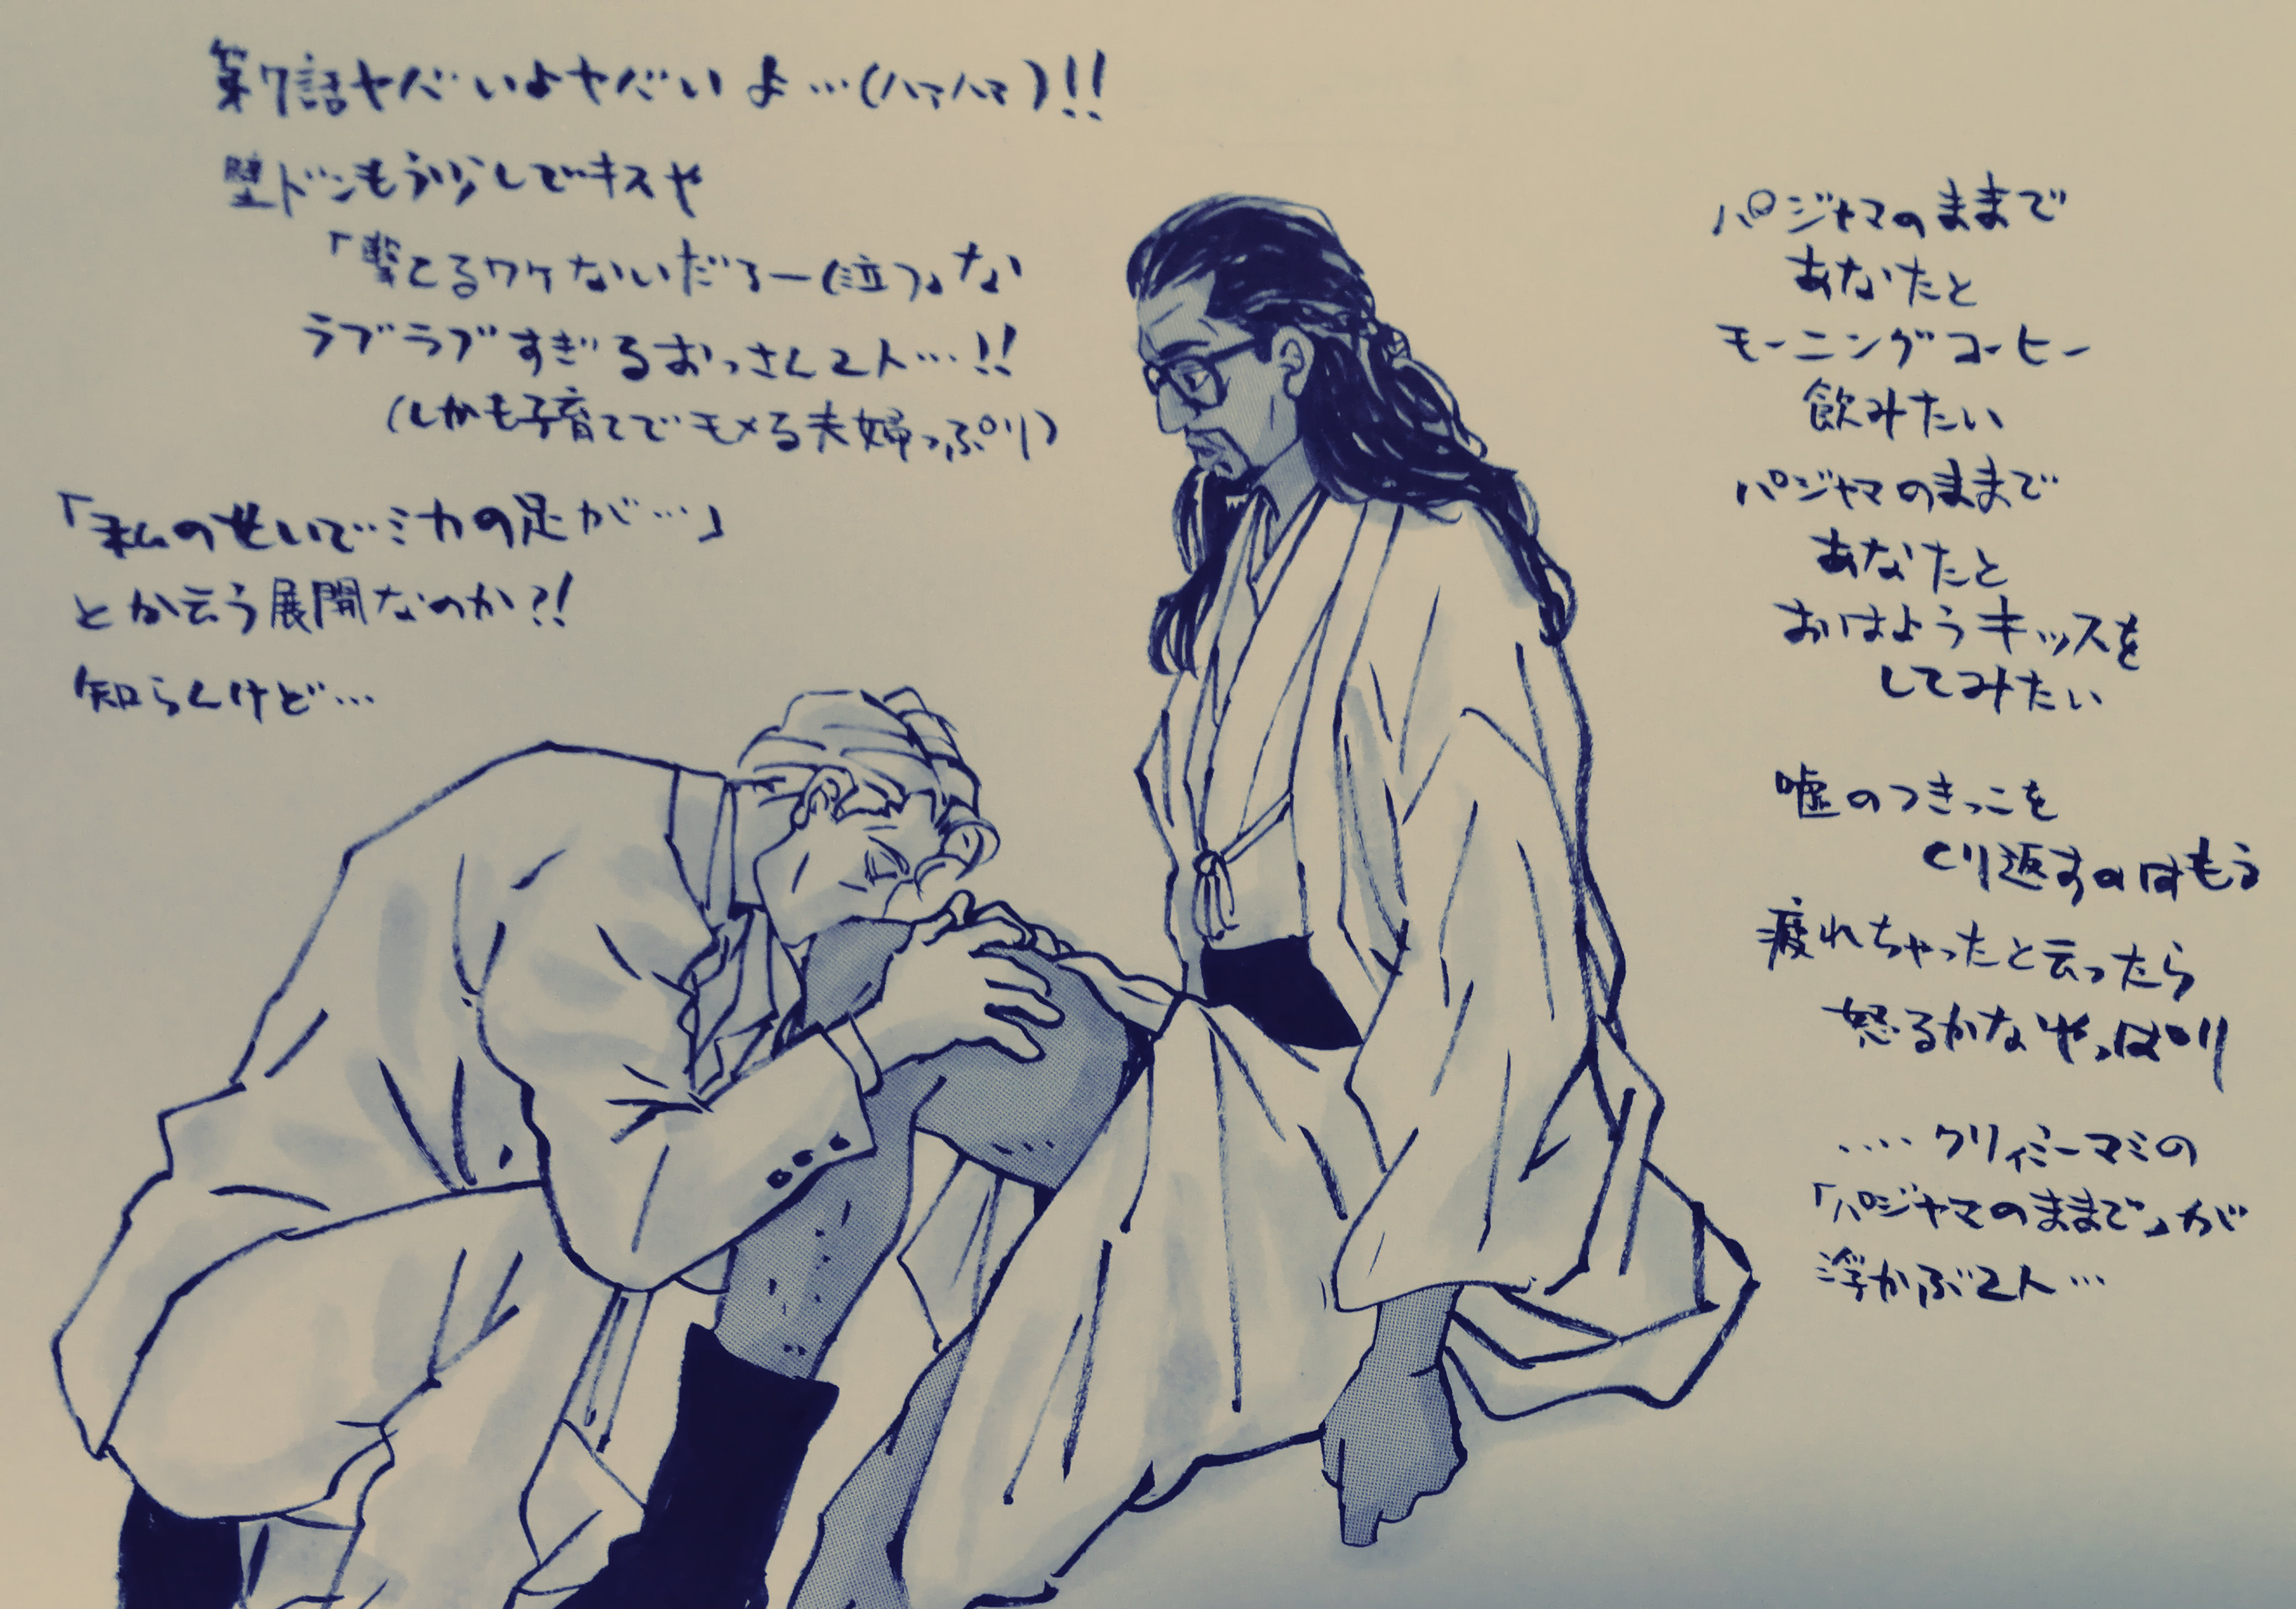 第7話ヤバいよヤバいよ…(ハァハァ)!!
壁ドンもう少しでキスや
「撃てるワケないだろー(泣)」な
ラブラブすぎるおっさん2人…!!
(しかも子育てでモメる夫婦っぷり)
「私のせいでミカの足が…」
とか云う展開なのか?!
知らんけど…
パジャマのままで
あなたと
モーニングコーヒー
飲みたい
パジャマのままで
あなたと
おはようキッスを
してみたい
嘘のつきっこを
くり返すのはもう
疲れちゃったと云ったら
怒るかなやっぱり
‥‥クリィミーマミの
「パジャマのままで」が
浮かぶ2人…